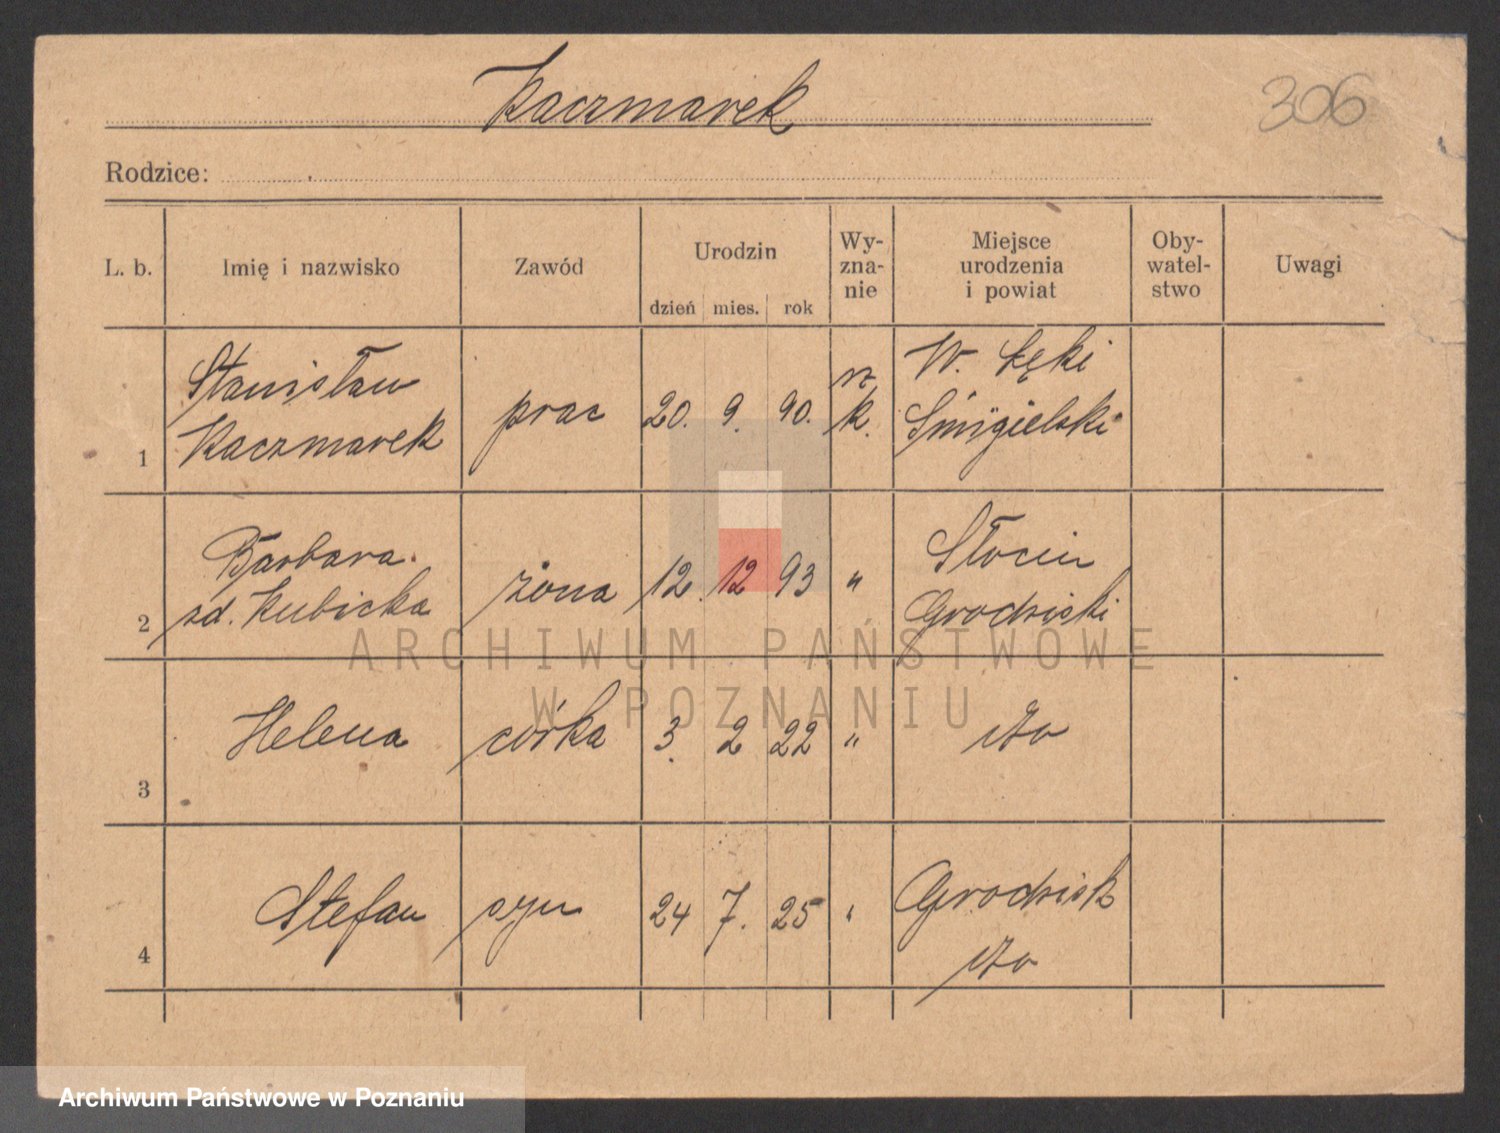 Kaczmarek
306
Rodzice:
L. b.
Imię i nazwisko
Zawód
Urodzin
dzień mies. rok
Wy-
zna-
nie
Miejsce
urodzenia
i powiat
Oby-
watel-
stwo
Uwagi
1
Stanisław
Kaczmarek
prac
20. 9. 90.
rz
k.
W. Łęki
Śmigielski
2
Barbara
zd. Kubicka
żona
12. 12 93
"
Słocin
Grodziski
3
Helena
córka
3. 2 22
"
dto
4
Stefan
syn
24 7. 25
"
Grodzisk
dto
ARCHIWUM PAŃSTWOWE
W POZNANIU
Archiwum Państwowe w Poznaniu